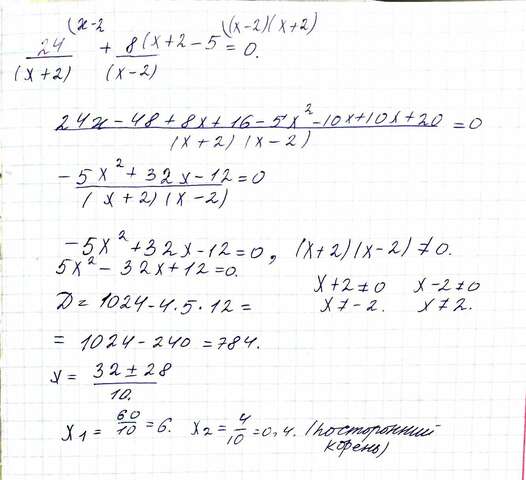 24 (x-2 / (x+2) + 8(x+2 / (x-2) - 5 \(x-2)(x+2) = 0.
24x - 48 + 8x + 16 - 5x² - 10x + 10x + 20 / (x+2)(x-2) = 0
-5x² + 32x - 12 / (x+2)(x-2) = 0
-5x² + 32x - 12 = 0, (x+2)(x-2) ≠ 0.
5x² - 32x + 12 = 0. x+2 ≠ 0 x-2 ≠ 0
D = 1024 - 4.5.12 = x ≠ -2. x ≠ 2.
= 1024 - 240 = 784.
x = 32 ± 28 / 10.
x₁ = 60/10 = 6. x₂ = 4/10 = 0,4. (посторонний
корень)